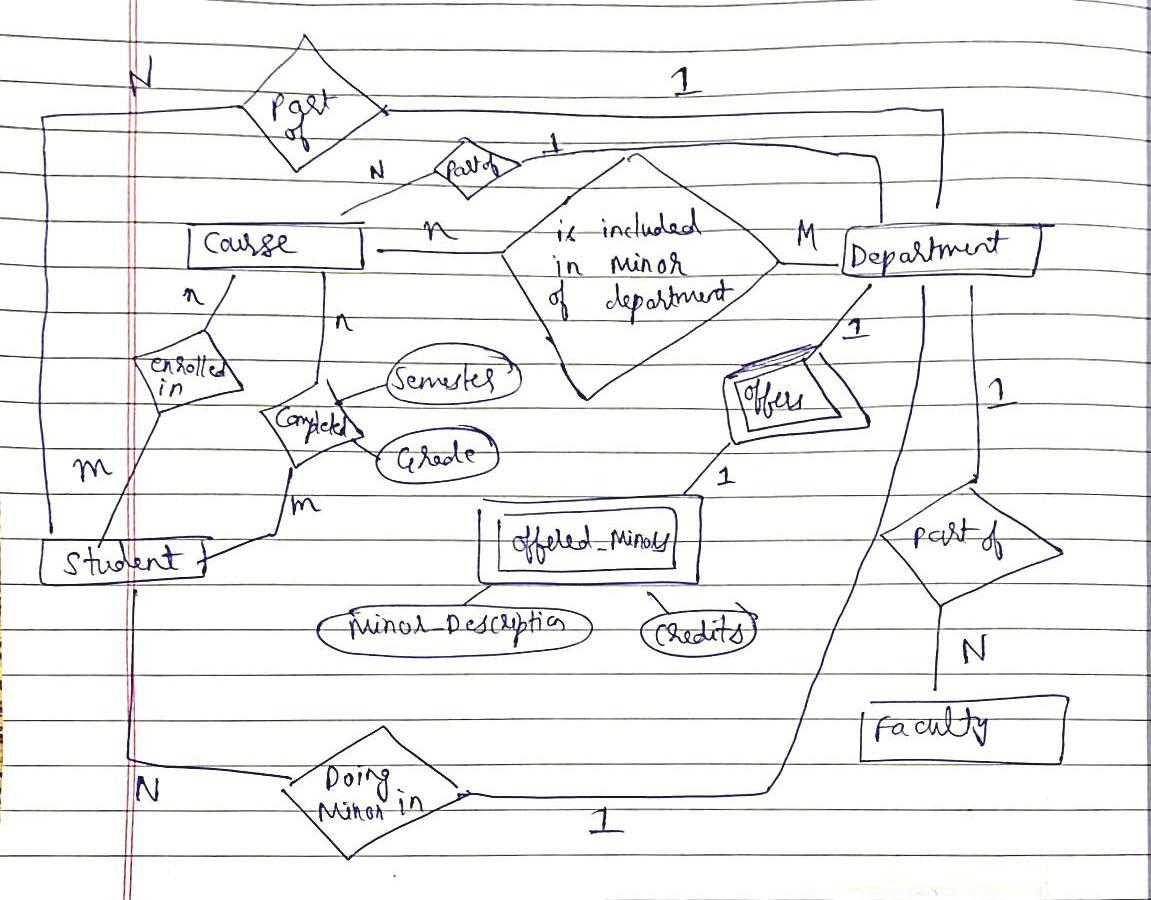 N
1
Part
of
N
Part of
1
Course
n
is included
in Minor
of department
M
Department
n
n
1
enrolled
in
Semester
Completed
Offers
1
Grade
m
1
m
Offered_Minors
Part of
Student
Minor_Description
Credits
N
Faculty
Doing
Minor in
N
1